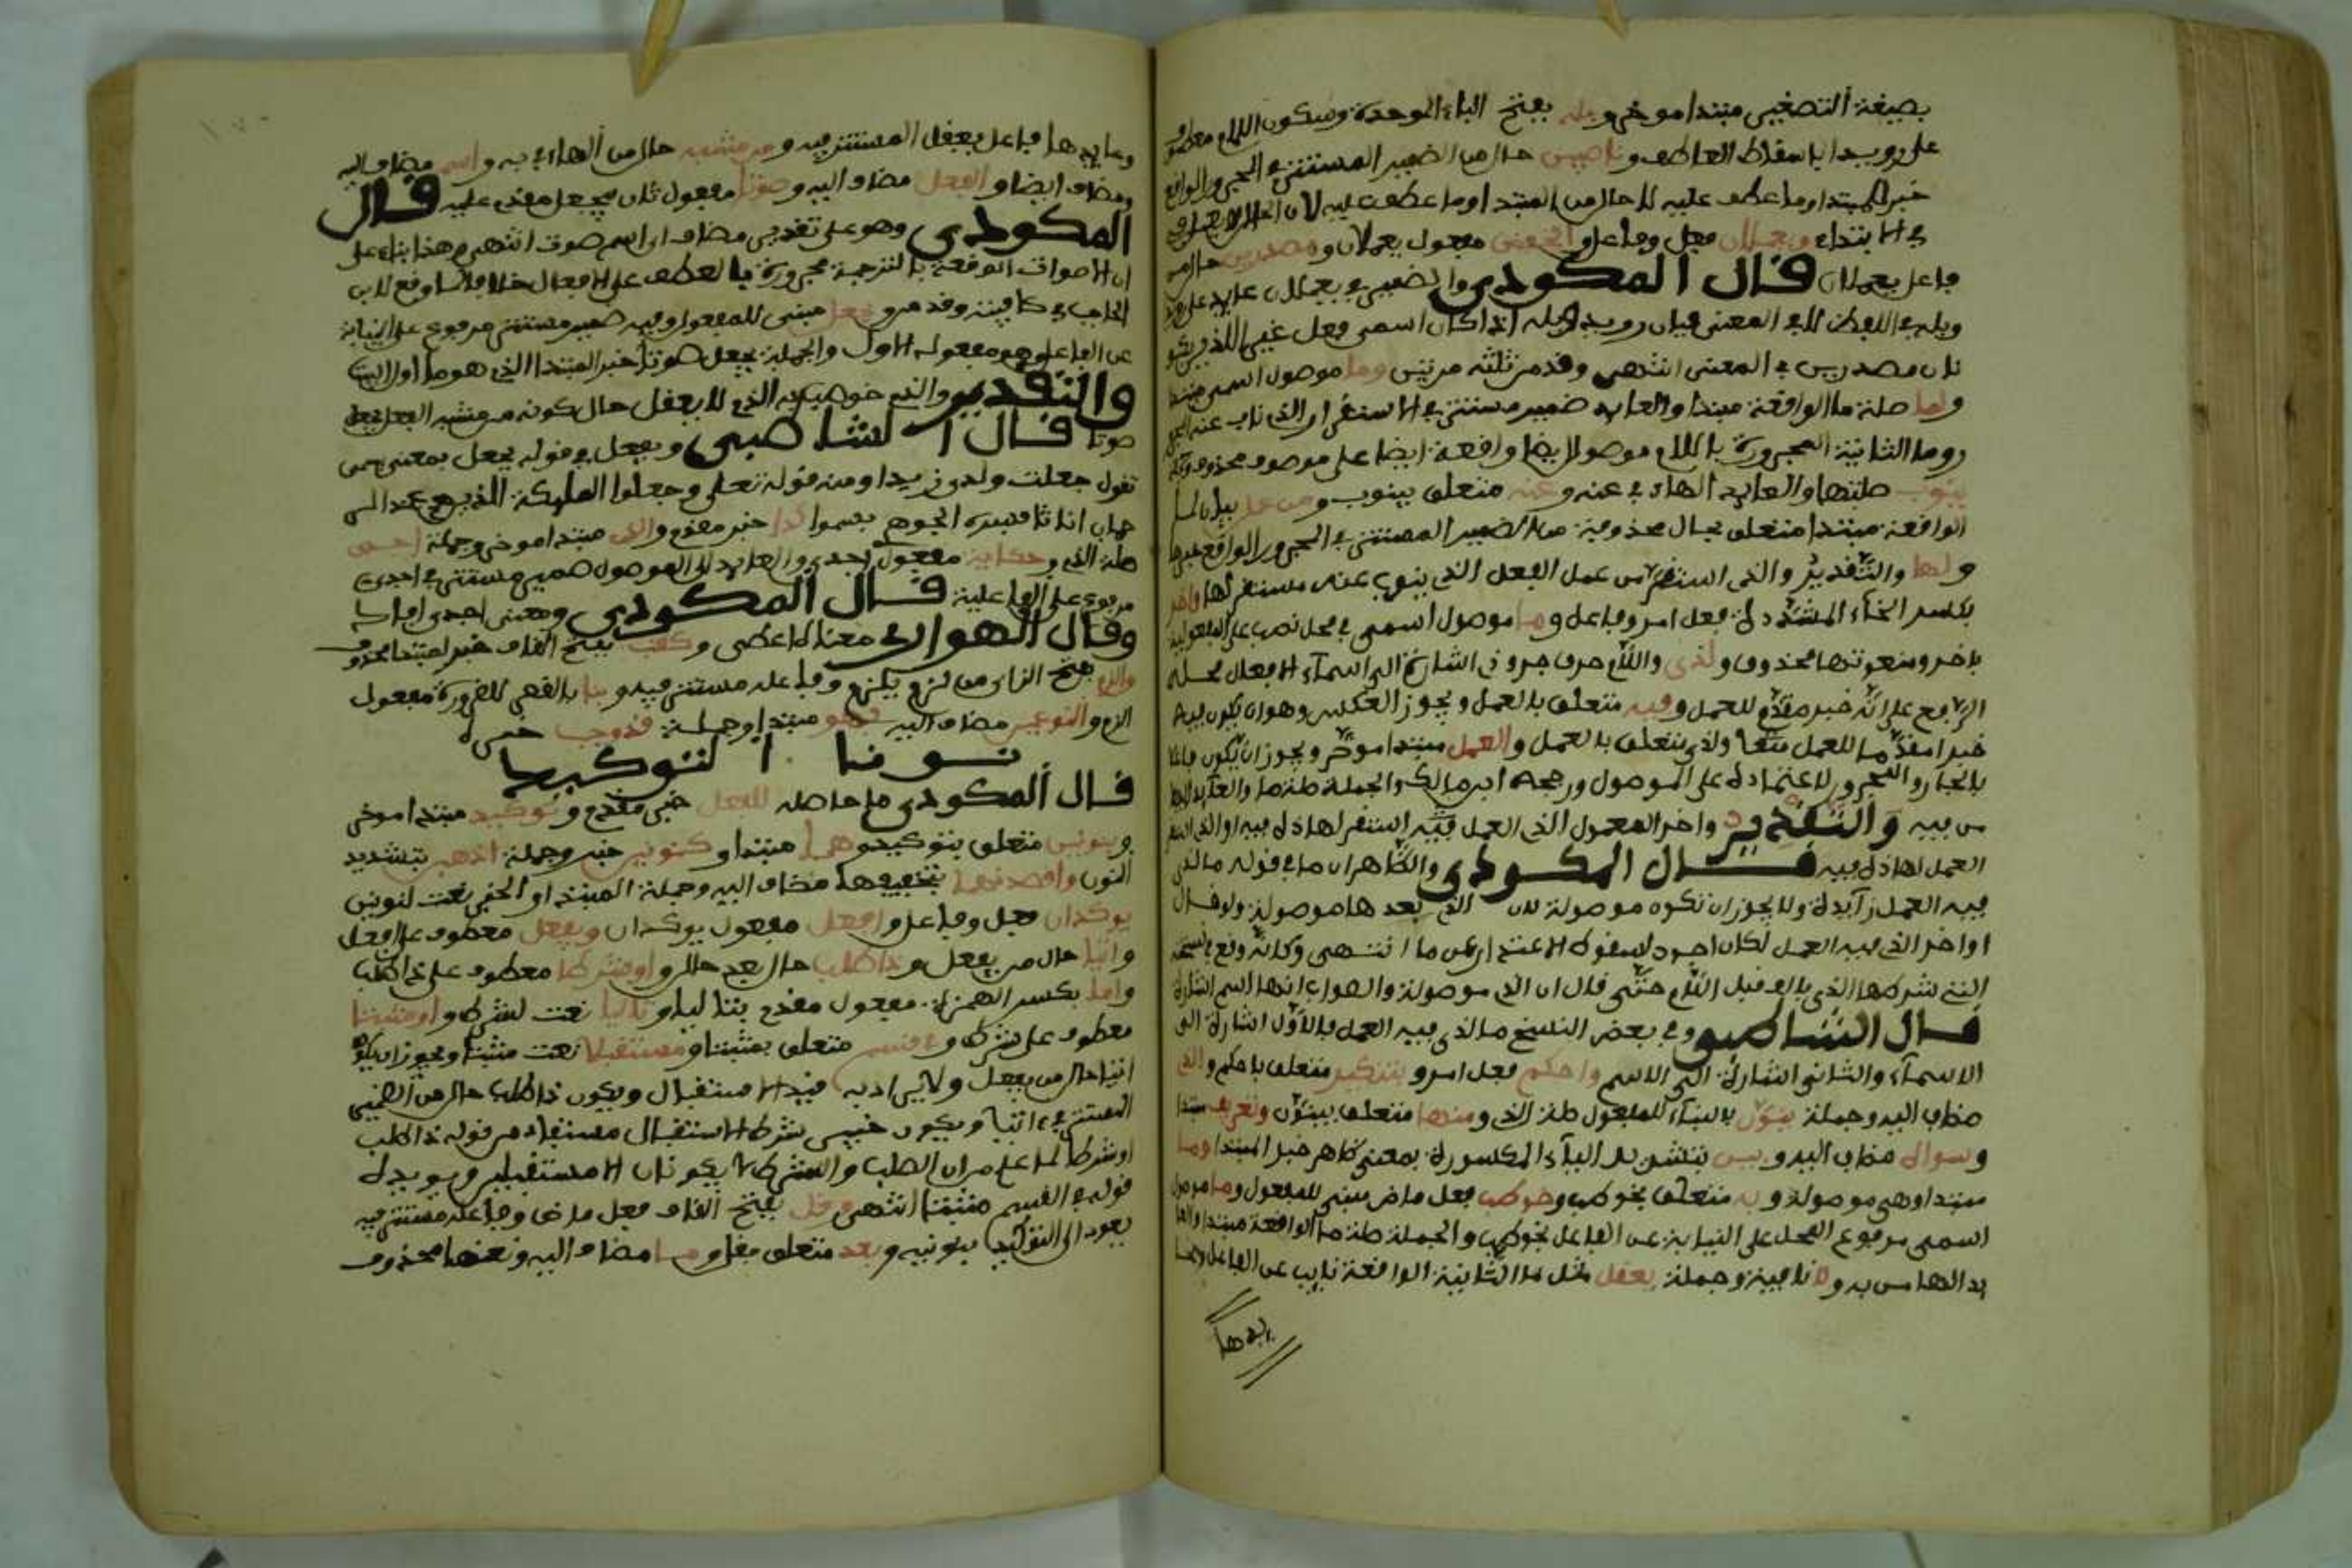 بصيغة التصغير مبتدا موخر وبله بفتح الباء الموحدة وسكون اللام معطوف
على رويدا باسقاط العاطف وناصبين حال من الضمير المستتر في المجرور الواقع
خبر المبتدا وما عطف عليه لا حال من المبتدا وما عطف عليه لان الحال لا
في الابتداء ويعملان فعل وفاعل والخفض مفعول يعملان ومصدرين حال من
فاعل يعملان قال المكودي والضمير في يعملان عايد على رويد
وبله في اللفظ لا في المعنى فان رويد وبله اذا كان اسمي فعل غير اللذين
نان مصدرين في المعنى انتهى وقد مر نثلثه مرتين وما موصول اسمي مبتدا
ولما صلة ما الواقعة مبتدا والعايد ضمير مستتر في الاستقرار الذي ناب عنه
روما الثانية المجرورة باللام موصول ايضا واقعة ايضا على موصوف محذوف
ينوب صلتها والعايد الهاء في عنه وعنه متعلق بينوب ومن عمل بيان لما
الواقعة مبتدا متعلق بحال محذوفة من الضمير المستتر في المجرور الواقع خبرها
ولها والتقدير والذي استقر من عمل الفعل الذي ينوب عنه مستقر لها واخر
بكسر الخاء المشددة فعل امر وفاعل وما موصول اسمي في محل نصب على المفعولية
باخر ومنعوتها محذوف ولذي واللام حرف جر وذي اشارة الى اسماء الافعال محله
الرفع على انه خبر مقدم للعمل وفيه متعلق بالعمل ويجوز العكس وهو ان يكون فيه
خبرا مقدما للعمل ولذي متعلق بالعمل والعمل مبتدا موخر ويجوز ان يكون فاعلا
بالجار والمجرور لاعتماده على الموصول ورجحه ابن مالك والجملة صلة ما والعايد الهاء
من فيه والتقدير واخر المعمول الذي العمل فيه استقر لهاذه فيه او الذي استقر
العمل لهاذه فيه قال المكودي والظاهر ان ما في قوله ما لذي
فيه العمل زايدة ولا يجوز ان تكون موصولة لان الذي بعدها موصولة ولو قال
واخر الذي فيه العمل لكان اجود لسقوط الاعتذار عن ما انتهى وكانه وقع في نسخته
التي شرحها الذي بالف قبل اللام حتى قال ان الذي موصولة والصواب انها اسم اشارة
قال الشاطبي وفي بعض النسخ ما لذي فيه العمل فالاول اشارة الى
الاسماء والثاني اشارة الى الاسم واحكم فعل امر وبتنكير متعلق باحكم والذي
مضاف اليه وجملة ينون بالبناء للمفعول صلة الذي ومنها متعلق بينون وتعريف مبتدا
وسواه مضاف اليه وبين بتشديد الياء المكسورة بمعنى ظاهر خبر المبتدا وما
مبتدا وهي موصولة وبه متعلق بخوطب وخوطب فعل ماض مبني للمفعول وما موصول
اسمي مرفوع المحل على النيابة عن الفاعل بخوطب والجملة صلة ما الواقعة مبتدا والعا
يد الهاء من به ولا نافية وجملة يعقل مثل ما الثانية الواقعة نايب عن الفاعل
يدها
وعايدها فاعل يعقل المستتر فيه ومن مشبه حال من الهاء في به واسم مضاف اليه
ومضاف ايضا والفعل مضاف اليه وصوتا مفعول ثان بيجعل مقدم عليه قال
المكودي وهو على تقدير مضاف اي اسم صوت انتهى وهذا بناء على
ان الاصوات الواقعة بالترجمة مجرورة بالعطف على الافعال خلافا لما وقع لابن
الحاجب في كافيته وقد مر ويجعل مبني للمفعول وفيه ضمير مستتر مرفوع على النيابة
عن الفاعل وهو مفعوله الاول والجملة يجعل صوتا خبر المبتدا الذي هو ما اول البيت
والتقدير والذي خوطب به الذي لا يعقل حال كونه من مشبه الفعل يجعل
صوتا قال الشاطبي ويجعل في قوله يجعل بمعنى يسمى
تقول جعلت ولدي زيدا ومنه قوله تعلى وجعلوا الملئكة الذين هم عند الر
حمان اناثا فسره الجوهر بسموا كذا خبر مقدم والذي مبتدا موخر وجملة اجدى
صلة الذي وحكاية مفعول اجدى والعايد الى الموصول ضمير مستتر في اجدى
مرفوع على الفاعلية قال المكودي ومعنى اجدى افاد
وقال الهواري معناه اعطى وكقب بفتح القاف خبر لمبتدا محذوف
والزم بفتح الزاي من لزم يلزم وفاعله مستتر فيه وبنا بالقصر للضرورة مفعول
الزم والنوعين مضاف اليه فهو مبتدا وجملة قد وجب خبره
نونا التوكيد
قال المكودي ما حاصله للفعل خبر مقدم وتوكيد مبتدا موخر
وبنونين متعلق بتوكيد وهما مبتدا وكنوني خبر وجملة اذهبن بتشديد
النون واقصدنهما بتخفيفها مضاف اليه وجملة المبتدا والخبر نعت لنونين
يوكدان فعل وفاعل وافعل مفعول يوكدان ويفعل معطوف على افعل
واتيا حال من يفعل وذا طلب حال بعد حال واو شرطا معطوف على ذا طلب
واما بكسر الهمزة مفعول مقدم بتاليا وتاليا نعت لشرطا واو مثبتا
معطوف على شرطا وفي قسم متعلق بمثبتا ومستقبلا نعت مثبتا ويجوز ان يكون
اتيا حال من يفعل ولا يراد به فيد الاستقبال ويكون ذا طلب حال من الضمير
المستتر في اتيا ويكون خبير شرط الاستقبال مستفاد من قوله ذا طلب
او شرطا لما علم من ان الطلب والشرط لا يكونان الا مستقبلين ويويده
قوله في القسم مثبتا انتهى وقل بفتح القاف فعل ماض وفاعله مستتر فيه
يعود الى التوكيد بنونيه وبعد متعلق بقل وما مضاف اليه ونعتها محذوف